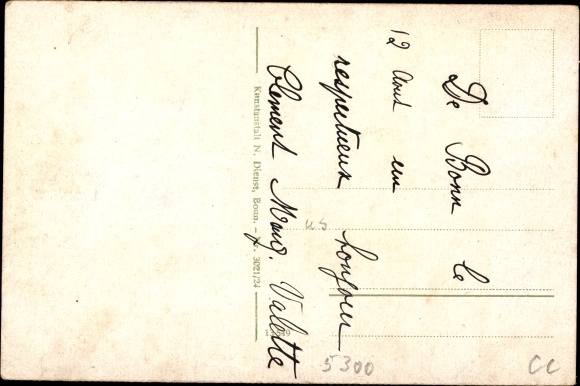 De Bonn le
12 Aout un
respectueux bonjour
Clement Marg. Valette
Kunstanstalt N. Dienst, Bonn. – Nr. 3021/24
us
5300
CC